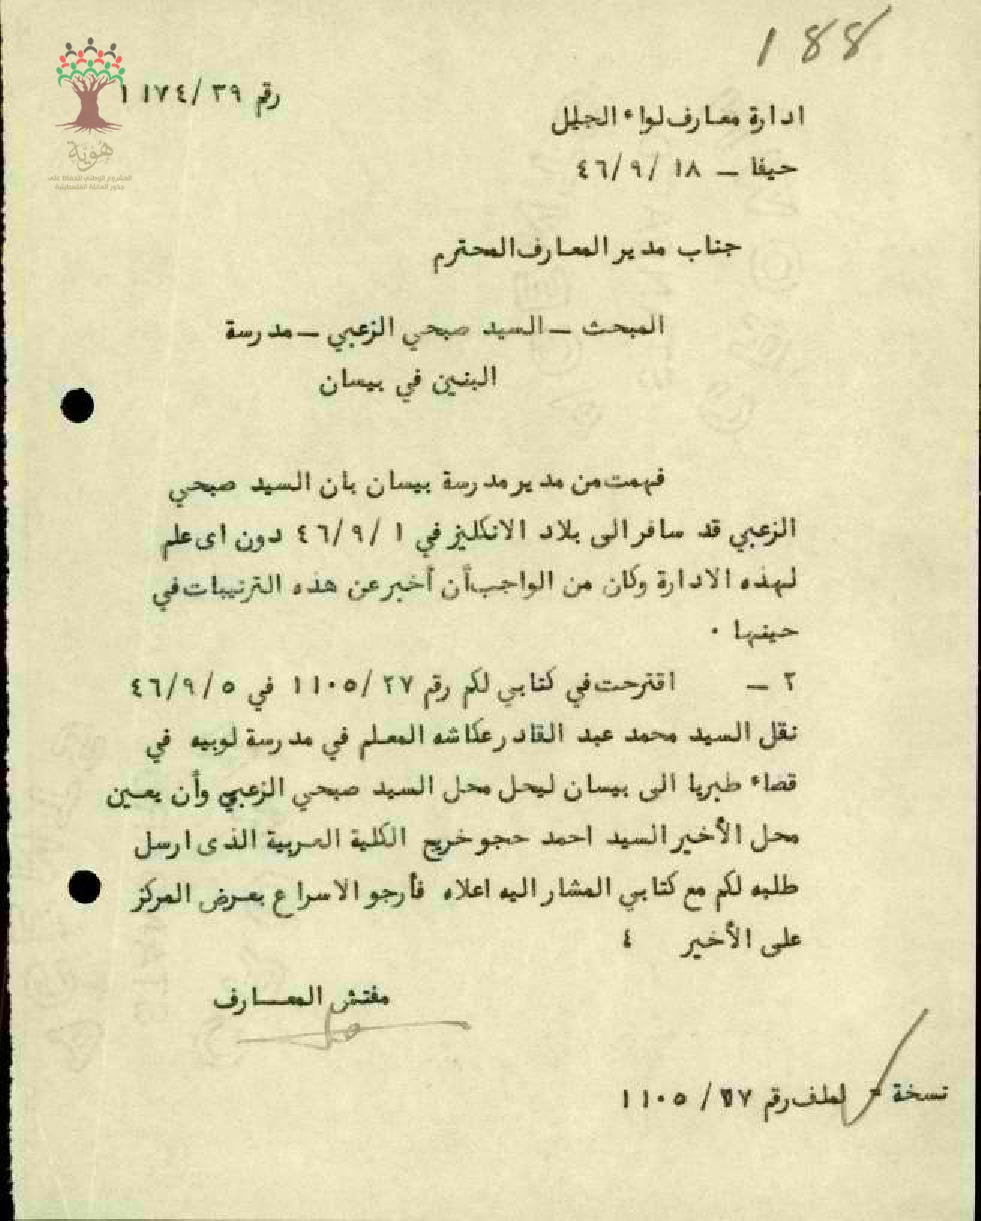 188
رقم ٣٩/ ١١٧٤
ادارة معارف لواء الجليل
حيفا ــ ١٨ /٩ /٤٦
هُوِيّة
المشروع الوطني للحفاظ على
جذور العائلة الفلسطينية
جناب مدير المعارف المحترم
المبحث ــ السيد صبحي الزعبي ــ مدرسة
البنين في بيسان
فهمت من مدير مدرسة بيسان بان السيد صبحي
الزعبي قد سافر الى بلاد الانكليز في ١ /٩/ ٤٦ دون اى علم
لهذه الادارة وكان من الواجب أن أخبر عن هذه الترتيبات في
حينها ٠
٢ ــ اقترحت في كتابي لكم رقم ٢٧/ ١١٠٥ في ٥ /٩/ ٤٦
نقل السيد محمد عبد القادر عكاشه المعلم في مدرسة لوبيه في
قضاء طبريا الى بيسان ليحل محل السيد صبحي الزعبي وأن يعين
محل الأخير السيد احمد حجو خريج الكلية العربية الذى ارسل
طلبه لكم مع كتابي المشار اليه اعلاه فأرجو الاسراع بعرض المركز
على الأخير ٤
مفتش المعــارف
نسخة - لملف رقم ٢٧/ ١١٠٥